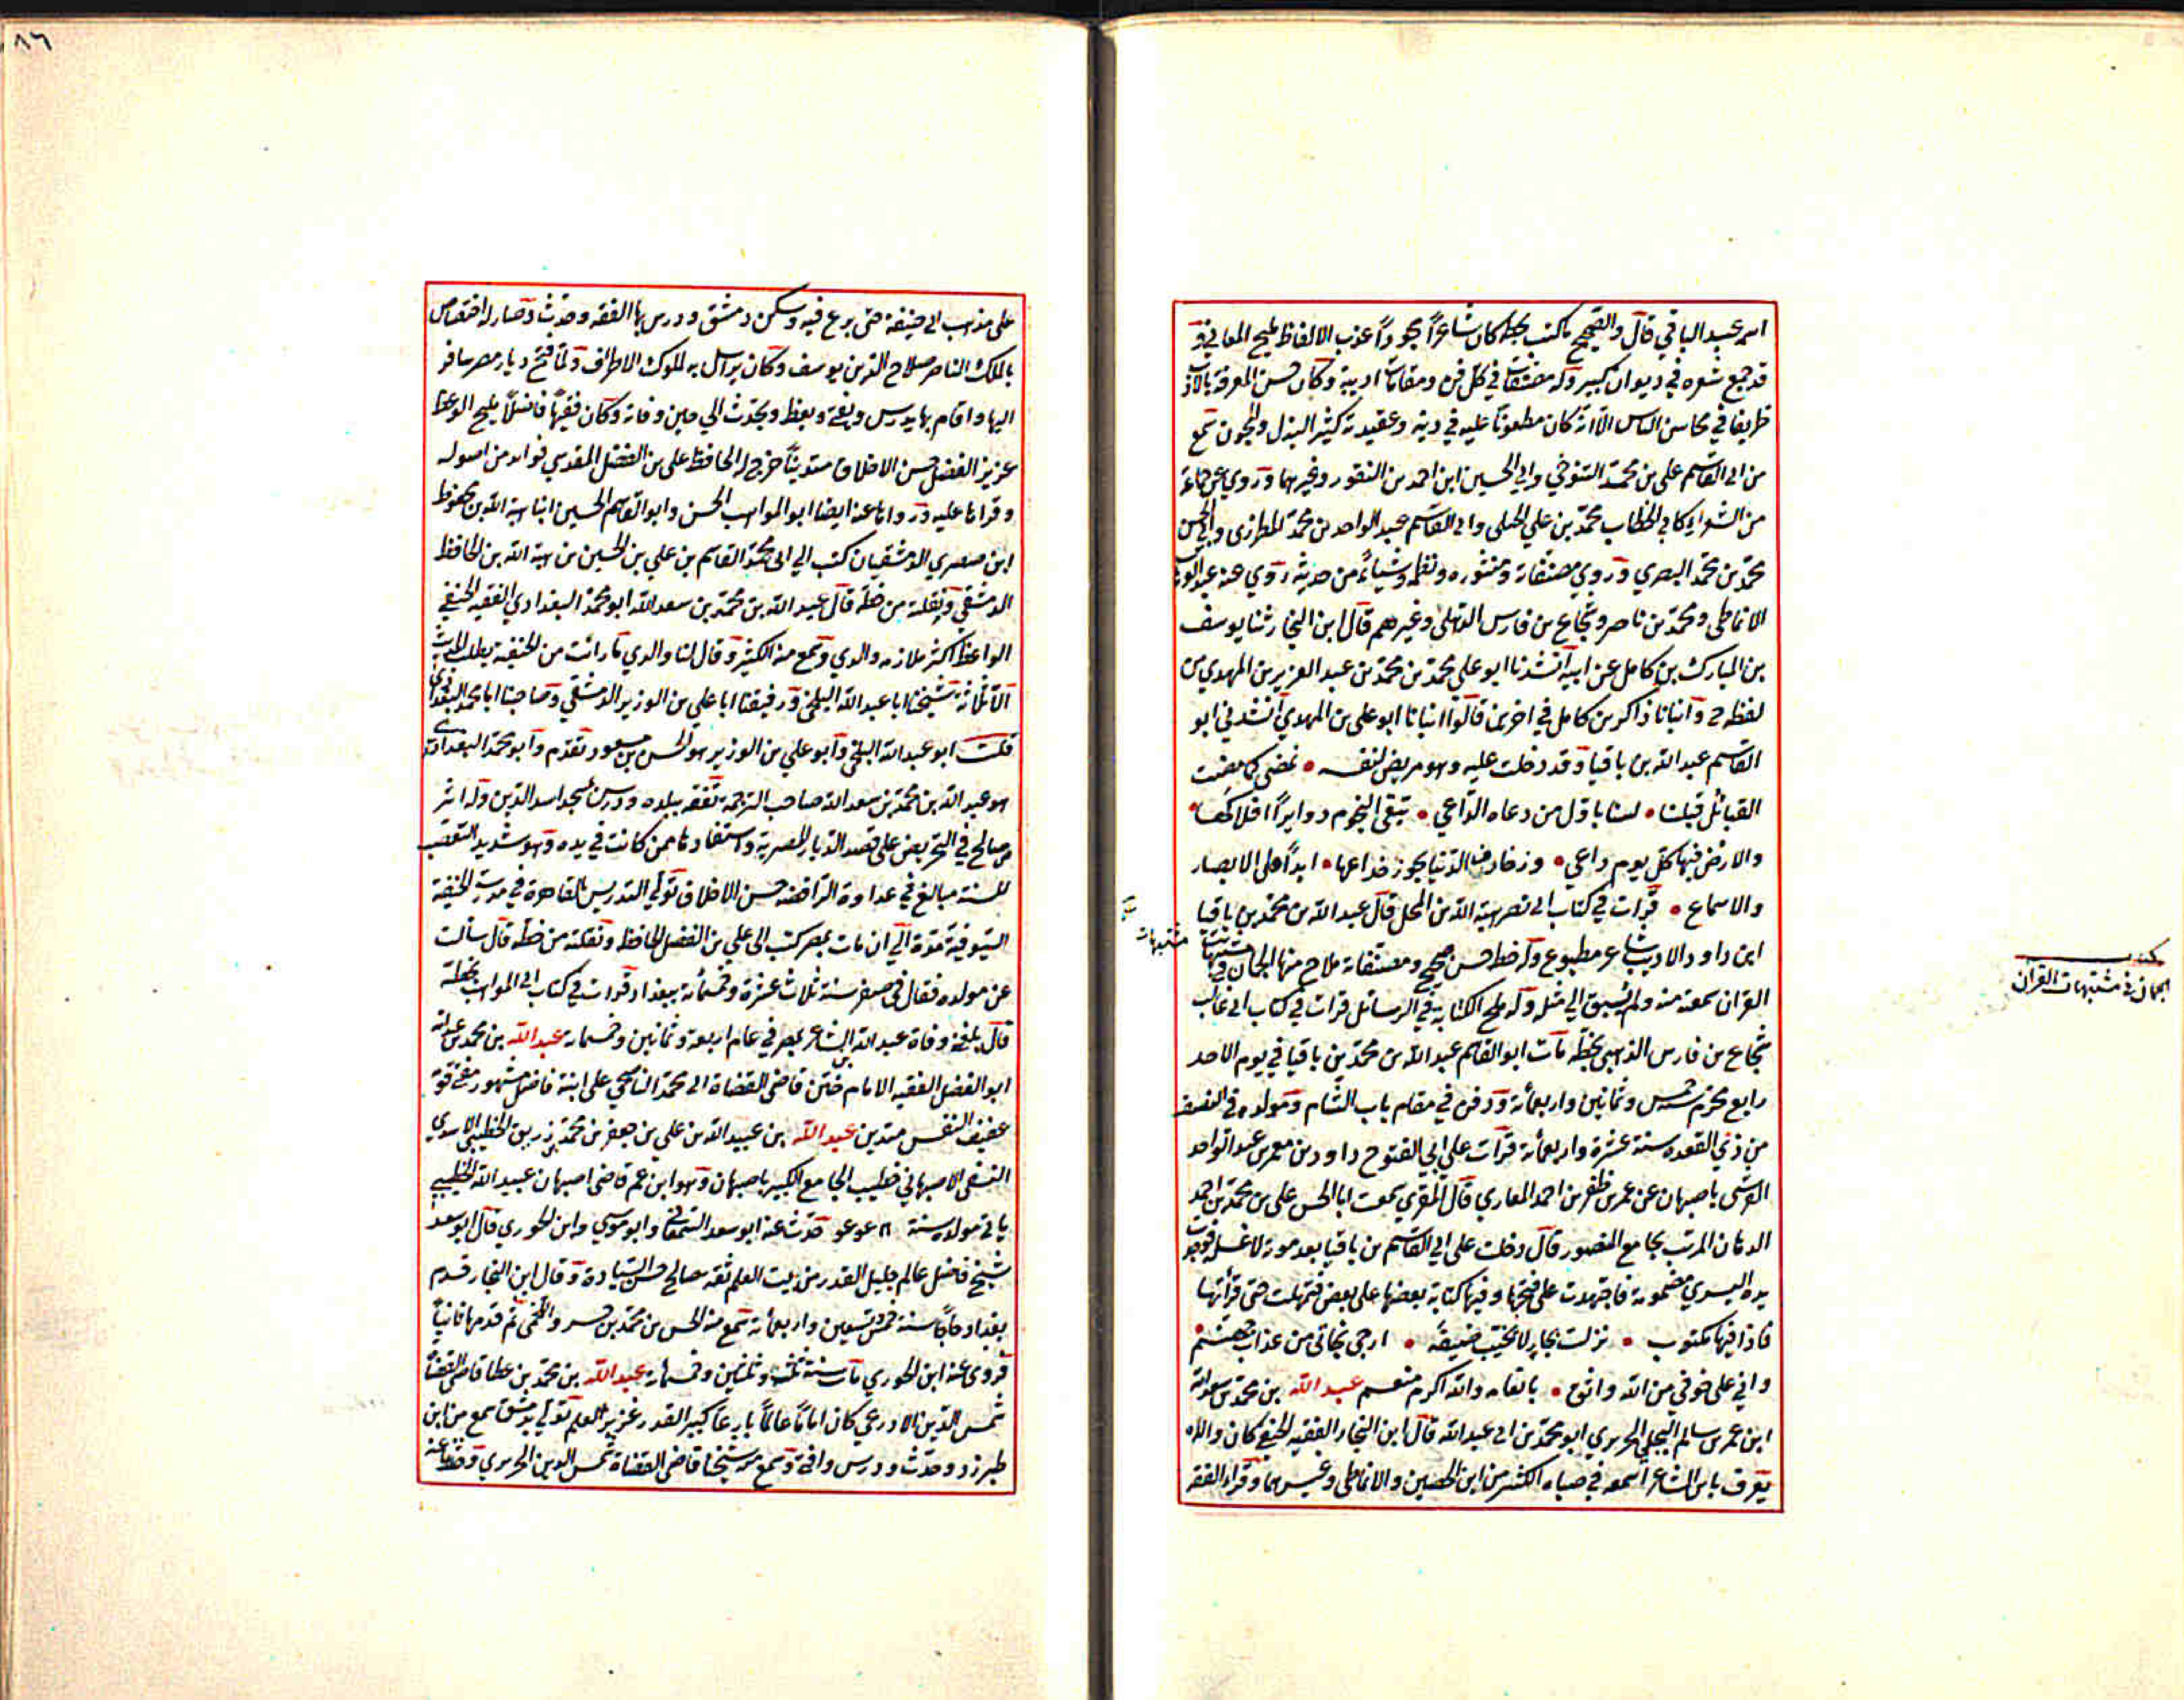 اسمه عبد الباقي قال والصحيح ما كتب بخطه كان شاعراً مجوداً عذب الالفاظ مليح المعاني و
قد جمع شعره في ديوان كبير وله مصنفات في كل فن ومقامات ادبية وكان حسن المعرفة بالادب
ظريفا في محاسن الناس الا انه كان مطعونا عليه في دينه وعقيدته كثير الهزل والمجون سمع
من ابي القاسم علي بن محمد التنوخي وابي الحسين ابن احمد بن النقور وغيرهما وروي عن جماعة
من الشعراء كابي الخطاب محمد بن علي الجبلى وابي القاسم عبد الواحد بن محمد المطرزى وابي الحسن
محمد بن محمد البصري وروي مصنفاته ومنثوره ونظمه وشياء من حديثه روي عنه عبد الوهاب
الانماطي ومحمد بن ناصر وشجاع بن فارس الذهلي وغيرهم قال ابن النجار ثنا يوسف
بن المبارك بن كامل عن ابيه انشدنا ابو علي محمد بن محمد بن عبد العزيز بن المهدي من
لفظه ح وانبانا ذاكر بن كامل في اخرين قالوا انبانا ابو علي بن المهدي انشدني ابو
القاسم عبد الله بن باقيا وقد دخلت عليه وهو مريض لنفسه • نمضى كما مضت
القبائل قبلنا • لسنا باول من دعاه الداعي • تبقى النجوم دوايراً افلاكها •
والارض فيها كل يوم داعي • وزخارف الدنيا يجوز خداعها • ابداً على الابصار
والاسماع • قرات في كتاب ابي نصر هبة الله بن المجلي قال عبد الله بن محمد بن باقيا
ابن داود الاديب شاعر مطبوع وله خط حسن صحيح ومصنفاته ملاح منها الجمان في مشتبهات
القران سمعته منه ولم يسبق الي مثله وله ملح الكتابة في الرسائل قرات في كتاب ابي غالب
شجاع بن فارس الذهبي بخطه مات ابو القاسم عبد الله بن محمد بن باقيا في يوم الاحد
رابع محرم سنة خمس وثمانين واربعمائة ودفن في مقابر باب الشام ومولده في النصف
من ذي القعده سنة عشرة واربعمائة قرات علي ابي الفتوح داود بن معمر بن عبد الواحد
القرشي باصبهان عن عمر بن ظفر بن احمد المغاري قال المقري سمعت ابا الحسن علي بن محمد بن احمد
الدهان المرتب بجامع المنصور قال دخلت علي ابي القاسم بن باقيا بعد موته لاغسله فوجدت
يده اليسري مضمومة فاجتهدت على فتحها وفيها كتابة بعضها على بعض فتمهلت حتى قرأتها
فاذا فيها مكتوب • نزلت بجار لا يخيب ضيفه • ارجى نجاتي من عذاب جهنم •
واني على خوفي من الله واثق • بانعامه والله اكرم منعم عبد الله بن محمد بن سعد الله
ابن عمر بن سالم البجلي الحريري ابو محمد بن ابي عبد الله قال ابن النجار الفقيه الحنفي كان والده
يعرف بابن الشاعر اسمعه في صباه الكثير من ابن الحصين والانماطي وغيرهما وقراء الفقه
مشتبهات
كتاب
الجمان في مشتبهات القران
٨٦
على مذهب ابي حنيفة حتى برع فيه وسكن دمشق ودرس بها الفقه وحدث وصار له اختصاص
بالملك الناصر صلاح الدين يوسف وكان يراسل به لملوك الاطراف ولما فتح ديار مصر سافر
اليها واقام بها يدرس ويفتي ويعظ ويحدث الي حين وفاته وكان فقيهاً فاضلاً مليح الوعظ
غزير الفضل حسن الاخلاق متديناً خرج له الحافظ علي بن الفضل المقدسي فوائد من اصوله
وقراها عليه ورواها عنه ايضا ابو المواهب الحسن وابو القاسم الحسين ابنا هبة الله بن محفوظ
ابن صصري الدمشقيان كتب الي ابى محمد القاسم بن علي بن الحسين بن هبة الله بن الحافظ
الدمشقي ونقلته من خطه قال عبد الله بن محمد بن سعد الله ابو محمد البغدادي الفقيه الحنفي
الواعظ اكثر ملازمه والدي وسمع منه الكثير وقال لنا والدي ما رائت من الحنفية يطلب الحديث
الا ثلاثة شيخنا ابا عبد الله البلخي ورفيقنا ابا علي بن الوزير الدمشقي وصاحبنا ابا محمد البغدادي
قلت ابو عبد الله البلخي وابو علي بن الوزير هو الحسن بن مسعود تقدم وابو محمد البغدادي
هو عبد الله بن محمد بن سعد الله صاحب الترجمة تفقه ببلده ودرس بمسجد اسد الدين وله اثر
صالح في التحريض على قصد الديار المصرية واستنقادها ممن كانت في يده وهو شديد التعصب
للسنة مبالغ في عداوة الرافضه حسن الاخلاق تولي التدريس بالقاهرة في مدرسة الحنفية
السيوفية مدة الي ان مات بمصر كتب الي علي بن الفضل الحافظ ونقلته من خطه قال سألت
عن مولده فقال في صفر سنة ثلاث عشرة وخمسمائة ببغداد قرات في كتاب ابي المواهب بخطه
قال بلغنا وفاة عبد الله الشاعر بمصر في عام اربعة وثمانين وخمسمائة عبد الله بن محمد بن عبد الله
ابو الفضل الفقيه الامام ختن قاضي القضاة ابي محمد الناصحي على ابنته فاضل مشهور مفتي ثقة
عفيف النفس متدين عبد الله بن عبيد الله بن علي بن جعفر بن محمد بن زريق الخطيبي الاسدي
النسفي الاصبهاني خطيب الجامع الكبير باصبهان وهو ابن عم قاضى اصبهان عبيد الله الخطيبي
ياتي مولده سنة حدث عنه ابو سعد السمعاني وابو موسي وابن الجوزي قال ابو سعد
شيخ فاضل عالم جليل القدر من بيت العلم ثقه صالح حسن السيادة وقال ابن النجار قدم
بغداد حاجا سنة خمس وتسعين واربعمائة سمع منه الحسن بن محمد بن خسرو البلخي ثم قدمها ثانياً
فروى عنه ابن الجوزي مات سنة ثلث وثلثين وخمسمائة عبد الله بن محمد بن عطا قاضى القضاة
شمس الدين الاذرعي كان اماماً عالماً بارعاً كبير القدر غزير العلم تولي بدمشق سمع من ابن
طبرزد وحدث ودرس وافتى وسمع منه شيخنا قاضي القضاة شمس الدين الحريري وحدثنا عنه